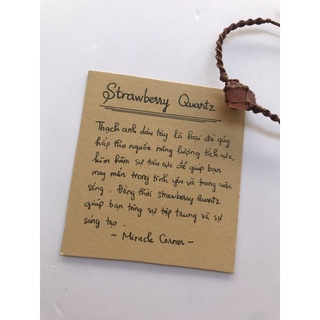 Strawberry Quartz
Thạch anh dâu tây là loại đá giúp
hấp thu nguồn năng lượng tích cực,
kìm hãm sự tiêu cực để giúp bạn
may mắn trong tình yêu và trong cuộc
sống. Đồng thời strawberry Quartz
giúp bạn tăng sự tập trung và sự
sáng tạo.
- Miracle Corner -